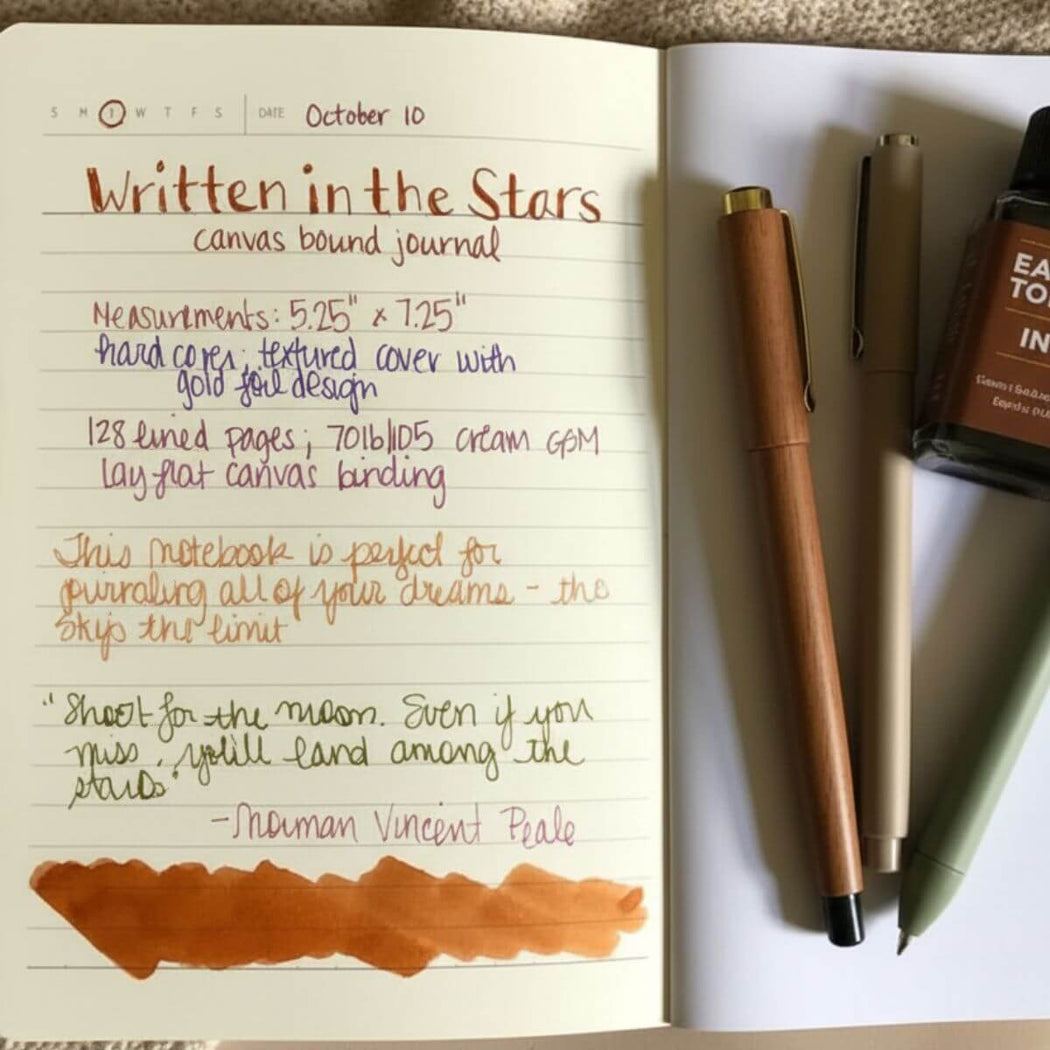 S M T W T F S DATE October 10
Written in the Stars
canvas bound journal
Measurements: 5.25" x 7.25"
hard cover; textured cover with
gold foil design
128 lined pages; 70lb/105 cream GSM
lay-flat canvas binding
This notebook is perfect for
journaling all of your dreams - the
sky's the limit
"Shoot for the moon. Even if you
miss, you'll land among the
stars"
-Norman Vincent Peale
EA
TO
IN